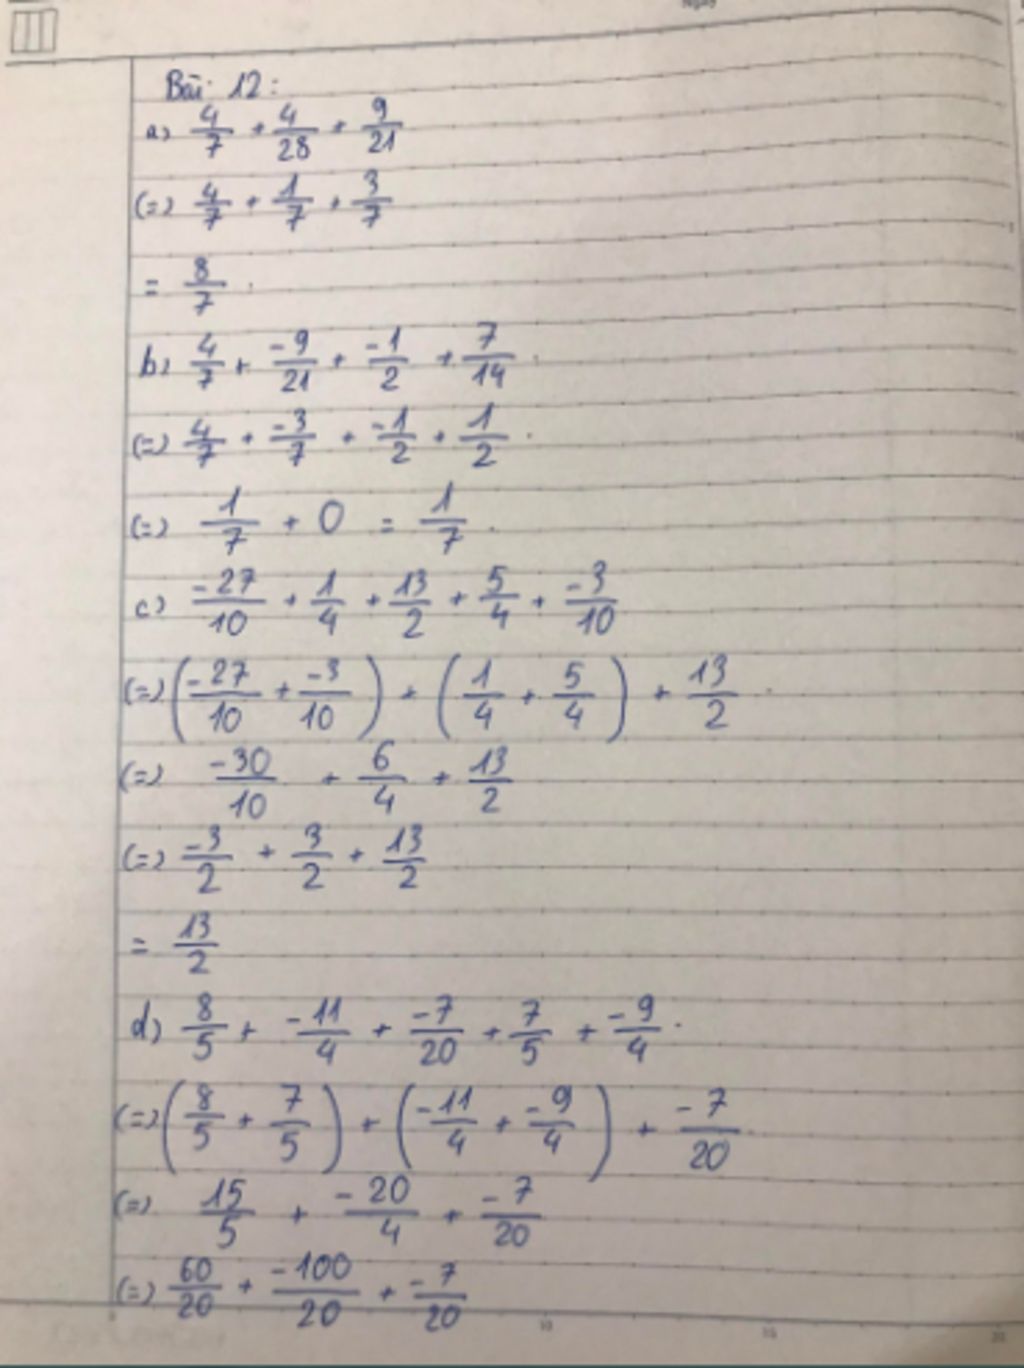 Bài 12:
a) 4/7 + 4/28 + 9/21
(=) 4/7 + 1/7 + 3/7
= 8/7.
b) 4/7 + -9/21 + -1/2 + 7/14.
(=) 4/7 + -3/7 + -1/2 + 1/2.
(=) 1/7 + 0 = 1/7.
c) -27/10 + 1/4 + 13/2 + 5/4 + -3/10
(=) (-27/10 + -3/10) + (1/4 + 5/4) + 13/2.
(=) -30/10 + 6/4 + 13/2
(=) -3/2 + 3/2 + 13/2
= 13/2
d) 8/5 + -11/4 + -7/20 + 7/5 + -9/4.
(=) (8/5 + 7/5) + (-11/4 + -9/4) + -7/20
(=) 15/5 + -20/4 + -7/20
(=) 60/20 + -100/20 + -7/20
10 15 20